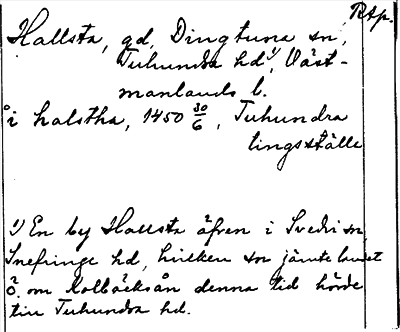 Rtp.
Hallsta, gd, Dingtuna sn,
Tuhundra hd¹⁾, Väst-
manlands l.
i halstha, 1450 30/6, Tuhundra
tingsställe
1) En by Hallsta äfven i Svedvi sn
Snefringe hd, hvilken sn jämte landet
ö. om Kolbäcksån denna tid hörde
till Tuhundra hd.